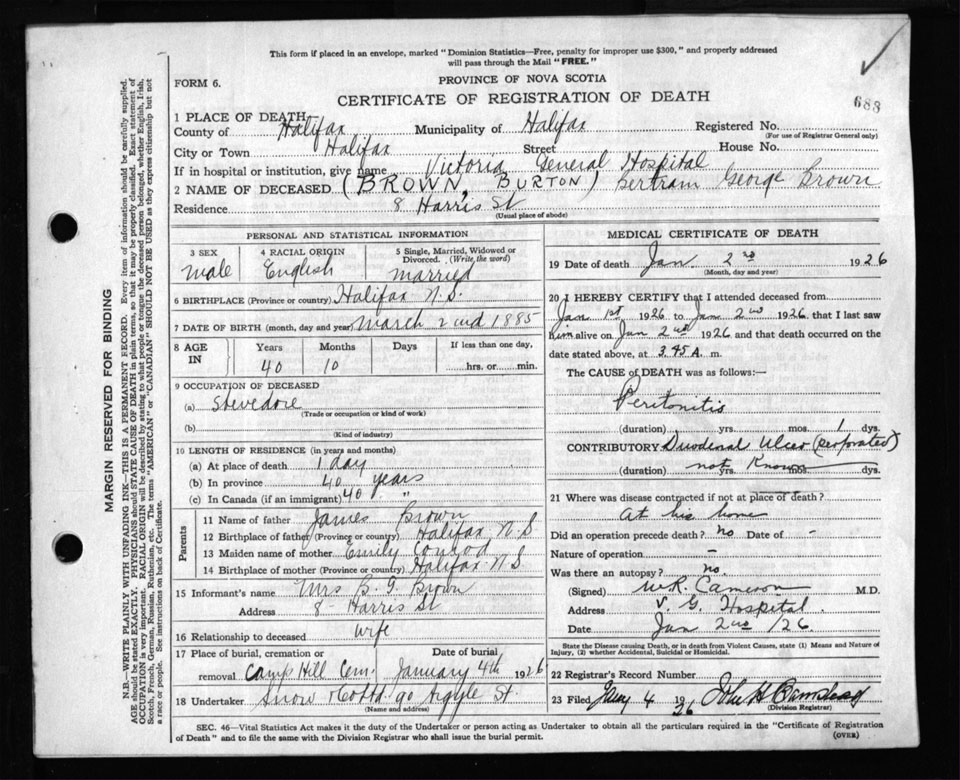 This form if placed in an envelope, marked "Dominion Statistics—Free, penalty for improper use $300," and properly addressed
will pass through the Mail "FREE."
FORM 6.
PROVINCE OF NOVA SCOTIA
CERTIFICATE OF REGISTRATION OF DEATH
688
1 PLACE OF DEATH
County of Halifax Municipality of Halifax Registered No.
(For use of Registrar General only)
City or Town Halifax Street House No.
If in hospital or institution, give name Victoria General Hospital
2 NAME OF DECEASED (BROWN, BURTON) Bertram George Brown
Residence 8 Harris St
(Usual place of abode)
PERSONAL AND STATISTICAL INFORMATION
3 SEX 4 RACIAL ORIGIN 5 Single, Married, Widowed or
Divorced. (Write the word)
male English married
6 BIRTHPLACE (Province or country) Halifax N.S.
7 DATE OF BIRTH (month, day and year) March 2nd 1885
8 AGE IN Years Months Days If less than one day,
40 10 hrs. or min.
9 OCCUPATION OF DECEASED
(a) Stevedore
(Trade or occupation or kind of work)
(b)
(Kind of industry)
10 LENGTH OF RESIDENCE (in years and months)
(a) At place of death 1 day
(b) In province 40 years
(c) In Canada (if an immigrant) 40 "
Parents
11 Name of father James Brown
12 Birthplace of father (Province or country) Halifax N S
13 Maiden name of mother Emily Conrod
14 Birthplace of mother (Province or country) Halifax N S
15 Informant's name Mrs B. G. Brown
Address 8 Harris St
16 Relationship to deceased wife
17 Place of burial, cremation or Date of burial
removal Camp Hill Cem. January 4th 1926
18 Undertaker Snow 90 Argyle St.
(Name and address)
MEDICAL CERTIFICATE OF DEATH
19 Date of death Jan. 2nd 1926
(Month, day and year)
20 I HEREBY CERTIFY that I attended deceased from
Jan 1st 1926 to Jan 2nd 1926, that I last saw
him alive on Jan 2nd 1926 and that death occurred on the
date stated above, at 3.45 A. m.
The CAUSE OF DEATH was as follows:—
Peritonitis
(duration) yrs. mos. 1 dys.
CONTRIBUTORY Duodenal Ulcer (perforated)
(duration) not yrs. Known mos. dys.
21 Where was disease contracted if not at place of death?
At his home
Did an operation precede death? no Date of -
Nature of operation -
Was there an autopsy? no.
(Signed) W.R. Cameron M.D.
Address V. G. Hospital.
Date Jan 2nd /26.
State the Disease causing Death, or in death from Violent Causes, state (1) Means and Nature of
Injury, (2) whether Accidental, Suicidal or Homicidal.
22 Registrar's Record Number
23 Filed Jany 4 1926 John H
(Division Registrar)
SEC. 46—Vital Statistics Act makes it the duty of the Undertaker or person acting as Undertaker to obtain all the particulars required in the "Certificate of Registration
of Death" and to file the same with the Division Registrar who shall issue the burial permit.
(OVER)
MARGIN RESERVED FOR BINDING
N.B.—WRITE PLAINLY WITH UNFADING INK—THIS IS A PERMANENT RECORD. Every item of information should be carefully supplied.
AGE should be stated EXACTLY. PHYSICIANS should STATE CAUSE OF DEATH in plain terms, so that it may be properly classified. Exact statement of
OCCUPATION is very important. RACIAL ORIGIN will be described by stating to what people or tongue the deceased person belonged, whether English, Irish,
Scotch, French, German, Russian, Ruthenian, etc. The terms "AMERICAN" or "CANADIAN" SHOULD NOT BE USED as they express citizenship but not
a race or people. See instructions on back of Certificate.